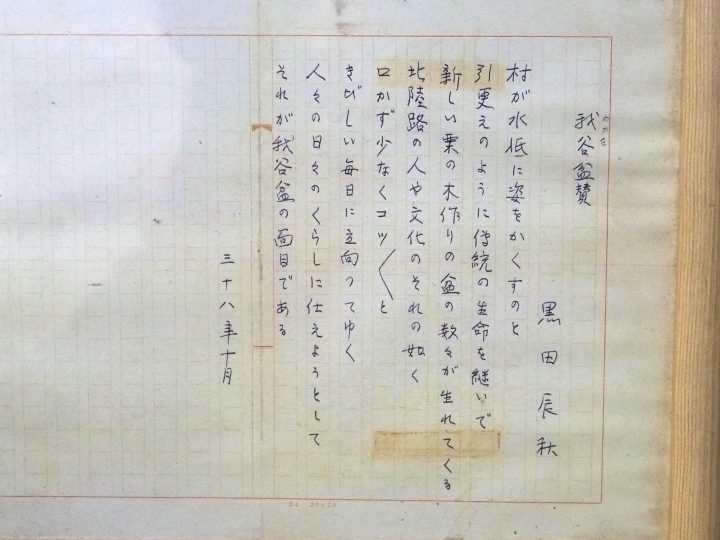 我谷盆賛
わがた
黒田辰秋
村が水低に姿をかくすのと
引更えのように伝統の生命を継いで
新しい栗の木作りの盆の数々が生れてくる
北陸路の人や文化のそれの如く
口かず少なくコツ〱と
きびしい毎日に立向ってゆく
人々の日々のくらしに仕えようとして
それが我谷盆の面目である
三十八年十月